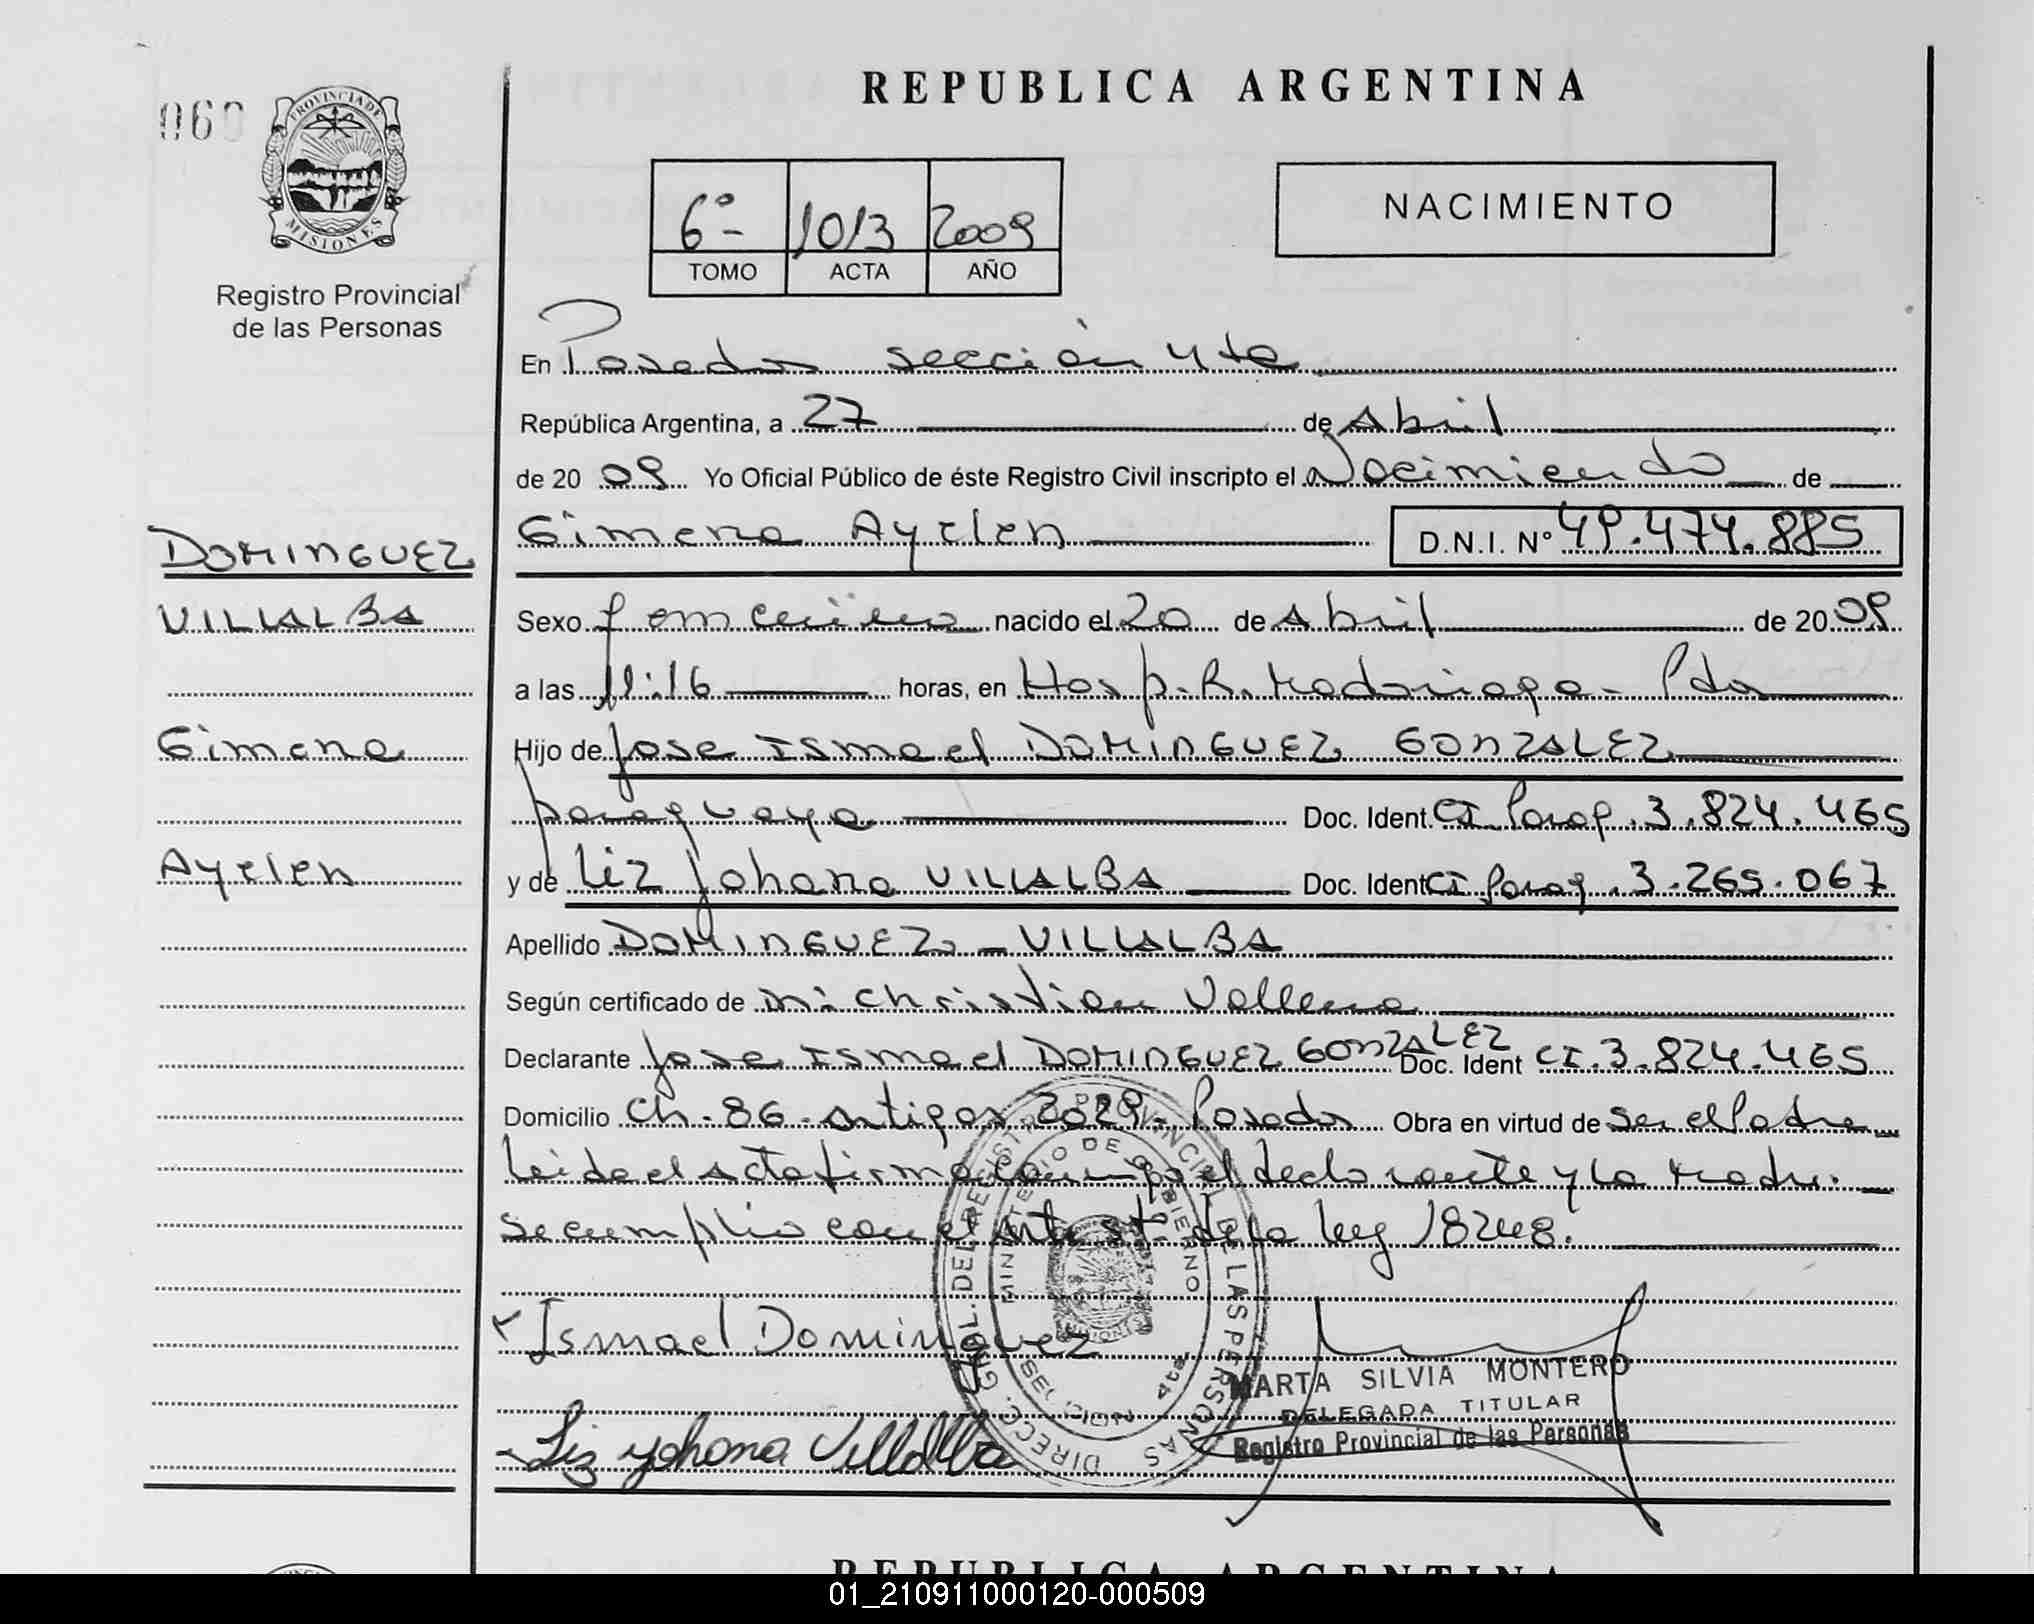 REPUBLICA ARGENTINA
060
PROVINCIA DE
MISIONES
Registro Provincial
de las Personas
6º- 1013 2009
TOMO ACTA AÑO
NACIMIENTO
En Posadas sección 4ta
República Argentina, a 27 de Abril
de 20 09 Yo Oficial Público de éste Registro Civil inscripto el Nacimiento de
Gimena Ayelen D.N.I. Nº 49.474.885
DOMINGUEZ
VILLALBA
Gimena
Ayelen
Sexo femenino nacido el 20 de Abril de 20 09
a las 11:16 horas, en Hosp. R. Madariaga - Pdas
Hijo de Jose Ismael DOMINGUEZ GONZALEZ
paraguaya Doc. Ident. CI Parag. 3.824.465
y de Liz Johana VILLALBA Doc. Ident CI Parag. 3.265.067
Apellido DOMINGUEZ - VILLALBA
Según certificado de Christian
Declarante Jose Ismael DOMINGUEZ GONZALEZ Doc. Ident CI. 3.824.465
Domicilio Ch. 86. Artigas 2029. Posadas Obra en virtud de ser el Padre
Leida el acta firma el declarante y la madre.
se cumplio con el de la ley 18248.
Ismael Dominguez
Liz yohana Villalba
DIRECC. GRAL. DEL REGISTRO PROVINCIAL DE LAS PERSONAS
MINISTERIO DE GOBIERNO
SECCION 4ta
MARTA SILVIA MONTERO
DELEGADA TITULAR
Registro Provincial de las Personas
REPUBLICA ARGENTINA
01_210911000120-000509